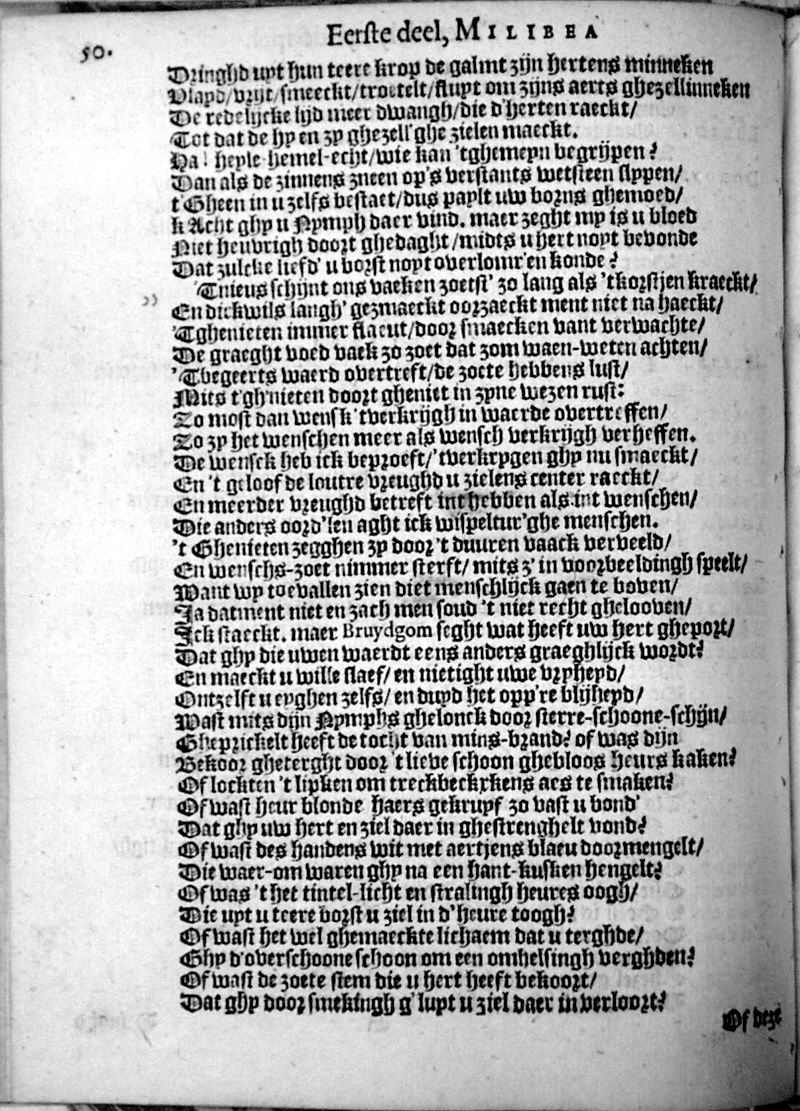 50.
Eerste deel, MILIBEA
Dringhd uyt hun teere krop de galmt zijn hertens minneken
Vlayd/vrijt/smeeckt/troetelt/fluyt om zijns aerts ghezellinneken
De redelijcke lijd meer dwangh/die d'herten raeckt/
Tot dat de hy en zy ghezell'ghe zielen maeckt.
Ha! heyle hemel-echt/wie kan 'tghemeyn begrijpen?
Dan als de zinnens zneen op's verstants wetsteen slypen/
t'Gheen in u zelfs bestaet/dus paylt uw borns ghemoed/
k Acht ghy u Nymph daer vind. maer zeght my is u bloed
Niet heuvrigh doort ghedaght/midts u hert noyt bevonde
Dat zulcke liefd' u borst noyt overlomr'en konde?
Tnieus schijnt ons vaeken zoetst' zo lang als 'tkorstjen kraeckt/
En dickwils langh' gezmaeckt oorzaeckt ment niet na haeckt/
'Tghenieten immer flaeut/door smaecken vant verwachte/
De graeght voed vaek zo zoet dat zom waen-weten achten/
'Tbegeerts waerd overtreft/de zoete hebbens lust/
Mits t'gh'nieten doort gheniet in zyne wezen rust:
Zo most dan wensk 'tverkrijgh in waerde overtreffen/
Zo zy het wenschen meer als wensch verkrijgh verheffen.
De wensck heb ick beproeft/'tverkrygen ghy nu smaeckt/
En 't geloof de loutre vreughd u zielens center raeckt/
En meerder vreughd betreft int hebben als int wenschen/
Die anders oord'len aght ick wispeltur'ghe menschen.
't Ghenieten zegghen zy door 't duuren vaack verveeld/
En wenschs-zoet nimmer sterft/ mits z' in voorbeeldingh speelt/
Want wy toevallen zien diet menschlijck gaen te boven/
Ja datment niet en zach men soud 't niet recht ghelooven/
Ick staeckt. maer Bruydgom seght wat heeft uw hert gheport/
Dat ghy die uwen waerdt eens anders graeghlijck wordt?
En maeckt u wille slaef/ en nietight uwe vryheyd/
Ontzelft u eyghen zelfs/ en duyd het opp're blijheyd/
Wast mits dijn Nymphs ghelonck door sterre-schoone-schijn/
Gheprickelt heeft de tocht van mins-brand? of was dijn
Bekoor gheterght door 't lieve schoon ghebloos heurs kaken?
Of lockten 't lipken om treckbeckxkens aes te smaken?
Of wast heur blonde haers gekruyf zo vast u bond'
Dat ghy uw hert en ziel daer in ghestrenghelt vond?
Of wast des handens wit met aertjens blaeu doormengelt/
Die waer-om waren ghy na een hant-kusken hengelt?
Of was 't het tintel-licht en stralingh heures oogh/
Die uyt u teere borst u ziel in d'heure toogh?
Of wast het wel ghemaeckte lichaem dat u terghde/
Ghy d'overschoone schoon om een omhelsingh verghden?
Of wast de zoete stem die u hert heeft bekoort/
Dat ghy door smekingh g'lupt u ziel daer in verloort?
Of deze